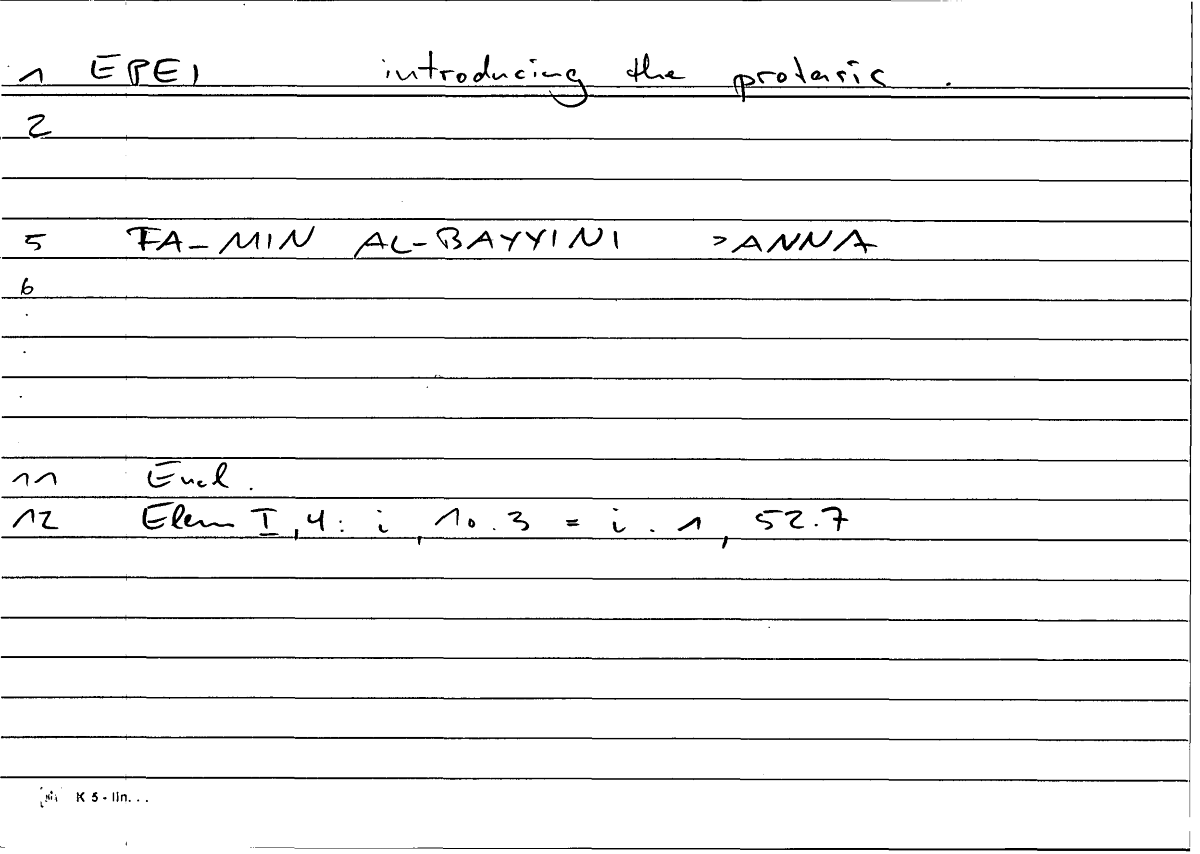 1 EPEI introducing the protasis .
2
5 FA-MIN AL-BAYYINI >ANNA
6
.
.
.
11 Eucl.
12 Elem I,4: i, 10.3 = i.1, 52.7
K 5 - lin. . .